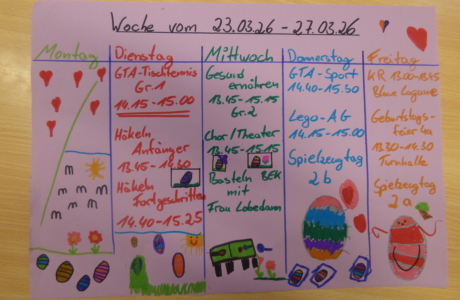 Woche vom 23.03.26 - 27.03.26
Montag
Dienstag
GTA-Tischtennis
Gr. 1
14.15-15.00
Häkeln
Anfänger
13.45-14.30
Häkeln
Fortgeschritten
14.40-15.25
Mittwoch
Gesund
ernähren
13.45-15.15
Gr. 2
Chor/Theater
13.45-15.15
Basteln BEK
mit
Frau Lobedann
Donnerstag
GTA-Sport
14.40-15.50
Lego-AG
14.15-15.00
Spielzeugtag
2b
Freitag
KR 13.00-13.45
Blaue Lagune
Geburtstags-
feier 4a
13.30-14.30
Turnhalle
Spielzeugtag
2a